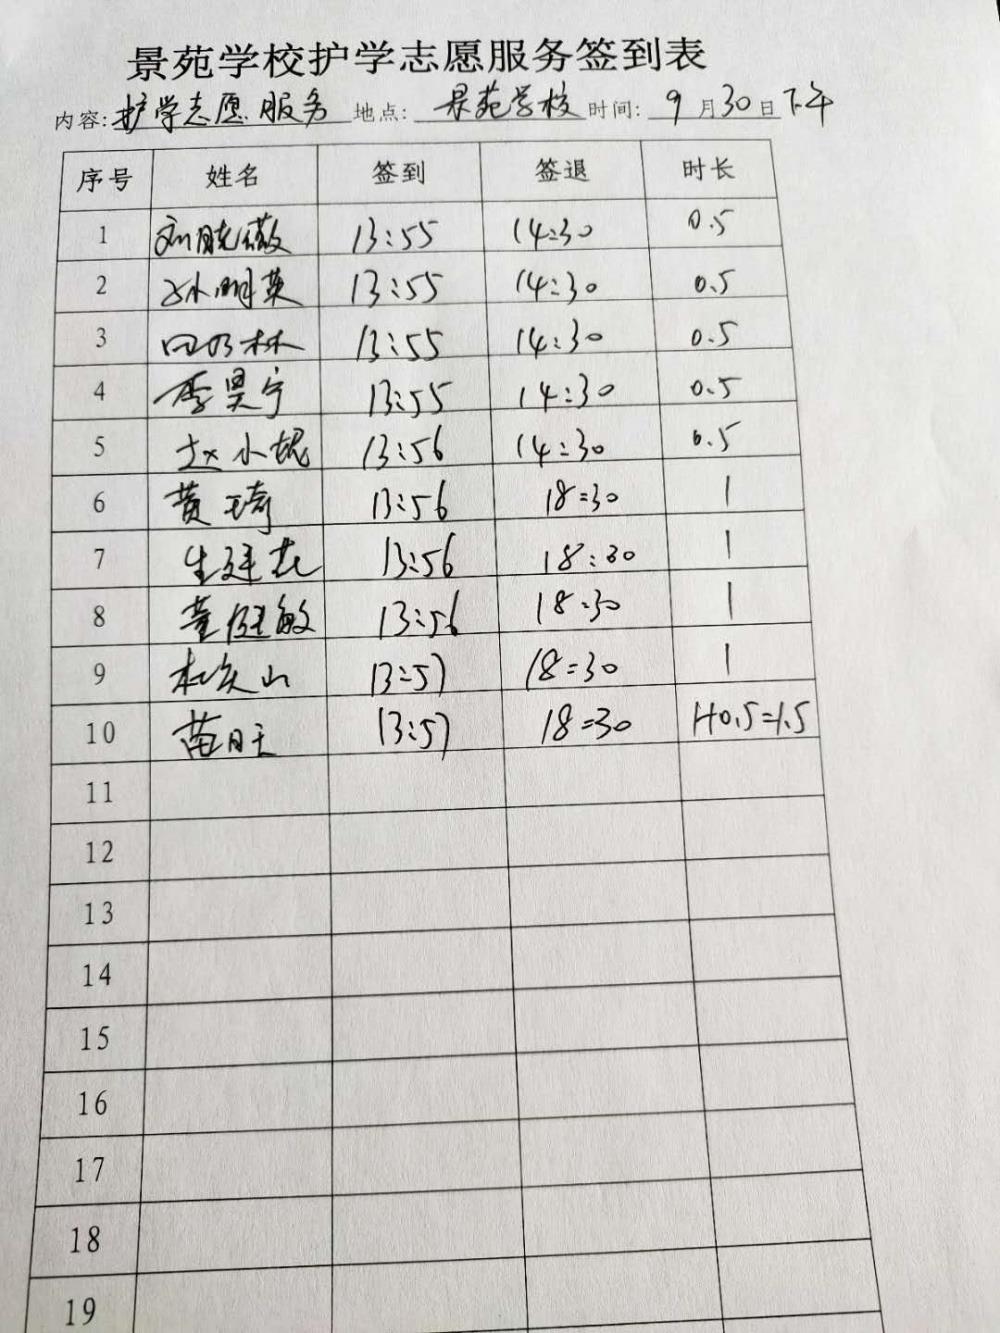 景苑学校护学志愿服务签到表
内容: 护学志愿服务 地点: 景苑学校 时间: 9月30日下午
序号 姓名 签到 签退 时长
1 刘晓薇 13:55 14:30 0.5
2 孙明英 13:55 14:30 0.5
3 田乃林 13:55 14:30 0.5
4 李昊宁 13:55 14:30 0.5
5 赵小妮 13:56 14:30 0.5
6 黄琦 13:56 18:30 1
7 13:56 18:30 1
8 董健敏 13:56 18:30 1
9 13:57 18:30 1
10 苗旺 13:57 18:30 1+0.5=1.5
11
12
13
14
15
16
17
18
19